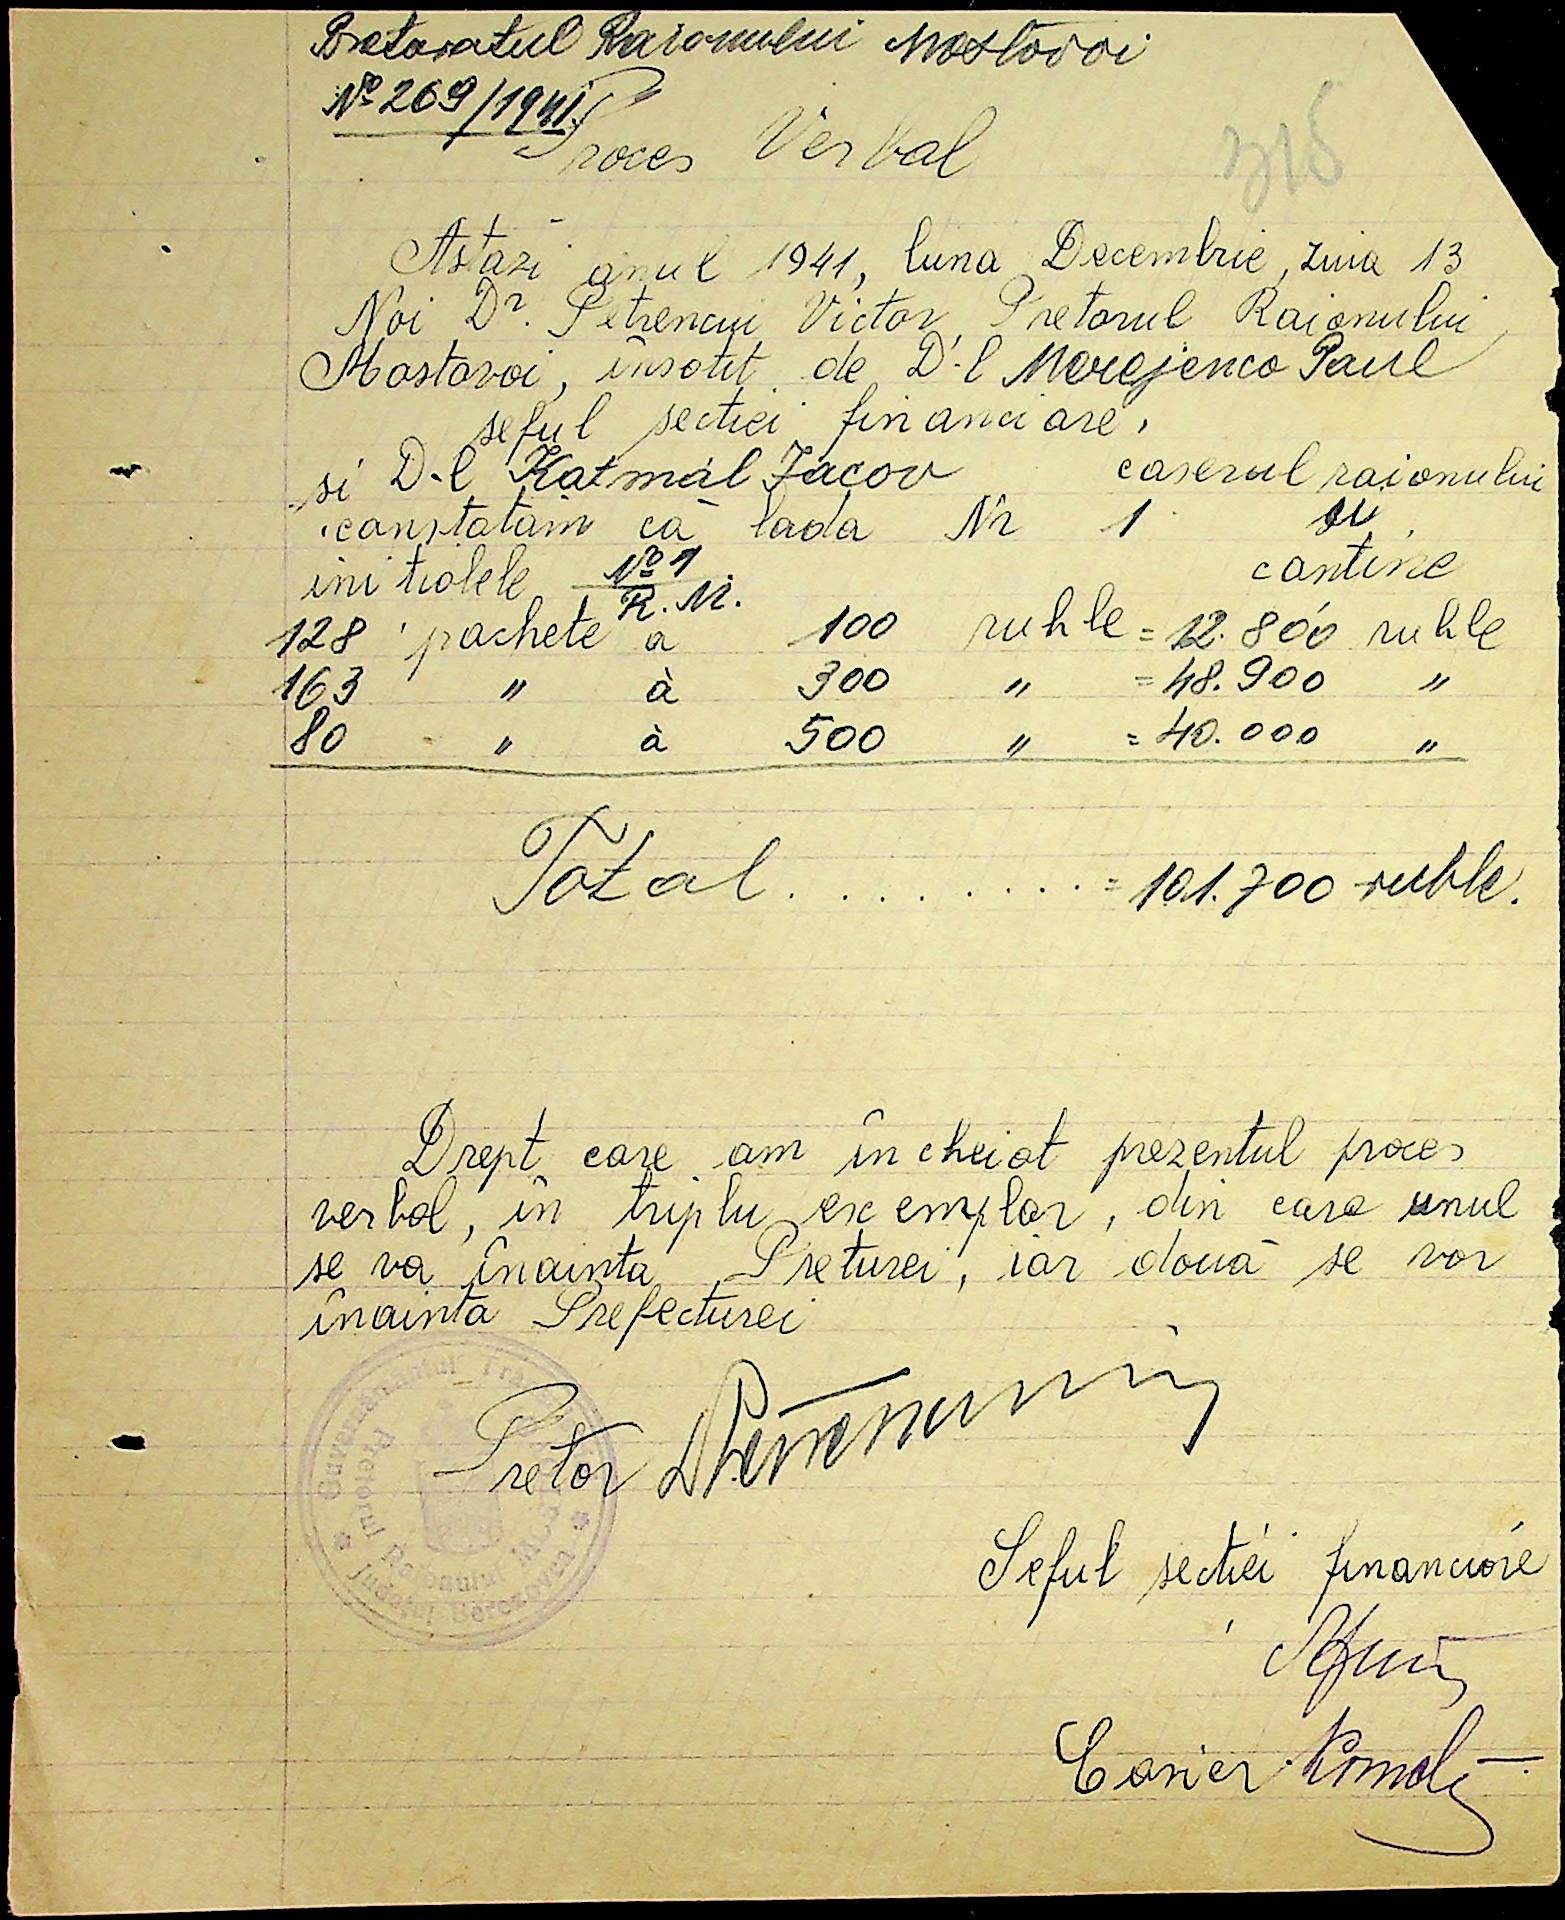 Pretoratul Raionului Mostovoi
№ 269/1941
Proces Verbal
315
Astazi anul 1941, luna Decembrie, ziua 13
Noi Dr. Petrencui Victor, Pretorul Raionului
Mostovoi, însotit de D-l Merejenco Paul
seful sectiei financiare,
si D-l Katmal Jacov caserul raionului
constatam că lada Nr 1 cu
initialele №1 contine
R. M.
128 pachete a 100 ruble = 12.800 ruble
163 " à 300 " = 48.900 "
80 " à 500 " = 40.000 "
Total . . . . . . . . . = 101.700 ruble.
Drept care am încheiat prezentul proces
verbal, în triplu exemplar, din care unul
se va înainta Preturei, iar două se vor
înainta Prefecturei
Guvernământul
Pretorul Raionului
Judeţul Berezovca
Pretor
Seful sectiei financiare
Casier